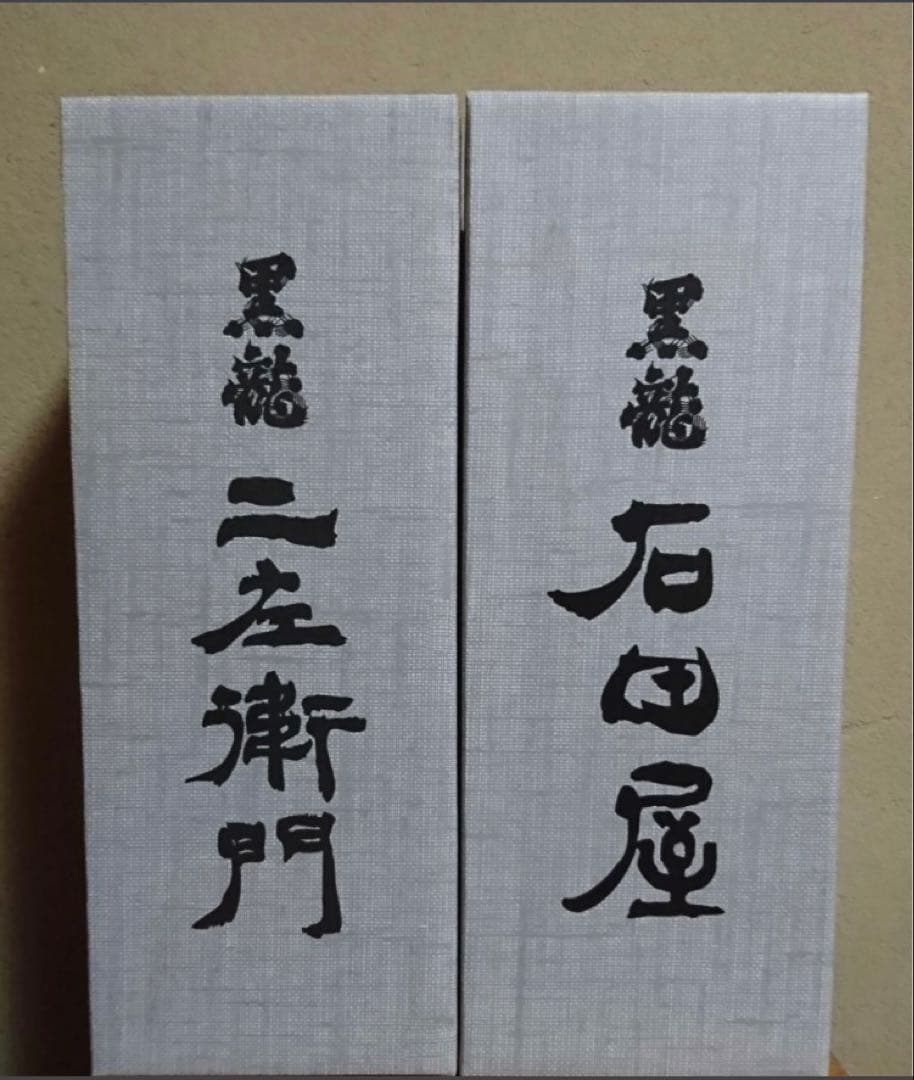 黒龍
二左衛門
黒龍
石田屋